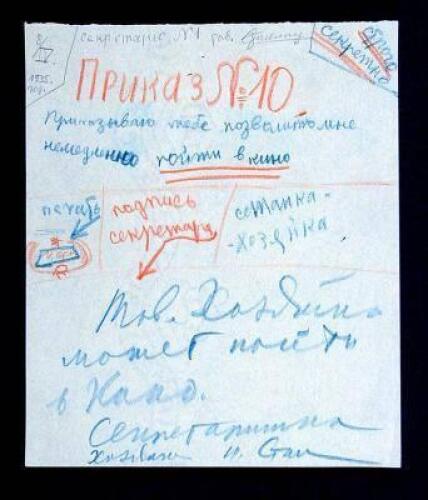 8/IV. 1935. году
секретарю, №1 тов. Сталину
строго секретно
Приказ №10
Приказываю тебе позволить мне
немедленно пойти в кино
печать
подпись
секретаря
сетанка-
-хозяйка
Тов. Хозяйка
может пойти
в Кино.
Секретаришка
и. Ста